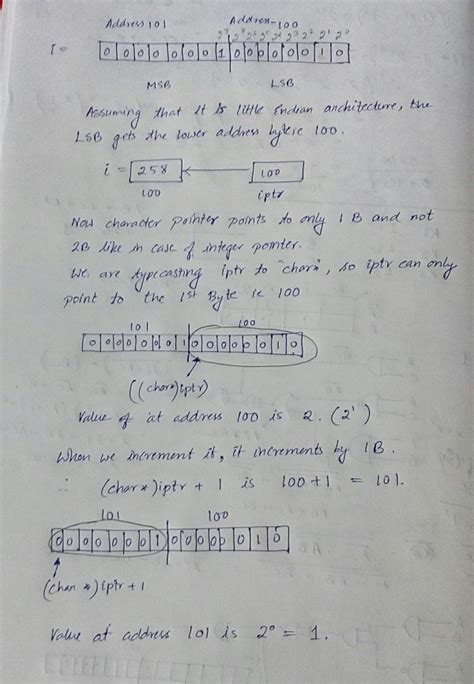 Address 101 Address-100
2⁸ 2⁷ 2⁶ 2⁵ 2⁴ 2³ 2² 2¹ 2⁰
I = 0 0 0 0 0 0 0 1 0 0 0 0 0 0 1 0
MSB LSB
Assuming that it is little Indian architecture, the
LSB gets the lower address byte ie 100.
i = 258 ← 100
100 iptr
Now character pointer points to only 1 B and not
2B like in case of integer pointer.
We are typecasting iptr to "char*", so iptr can only
point to the 1st Byte ie 100
101 100
0 0 0 0 0 0 1 0 0 0 0 0 0 1 0
((char*)iptr)
Value of at address 100 is 2. (2¹)
When we increment it, it increments by 1B.
∴ (char*)iptr + 1 is 100+1 = 101.
101 100
0 0 0 0 0 0 0 1 0 0 0 0 0 0 1 0
(char *)iptr + 1
Value at address 101 is 2⁰ = 1.